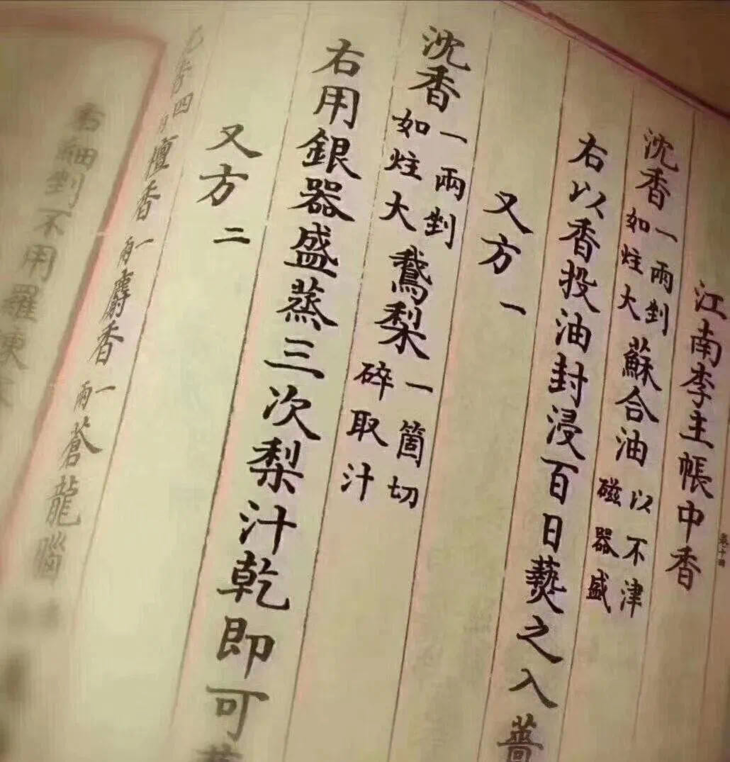 江南李主帳中香
沈香一兩剉如炷大蘇合油以不津磁器盛
右以香投油封浸百日爇之入薔
又方一
沈香一兩剉如炷大鵝梨一箇切碎取汁
右用銀器盛蒸三次梨汁乾即可
又方二
四兩檀香一兩麝香一兩蒼龍腦
右細剉不用羅